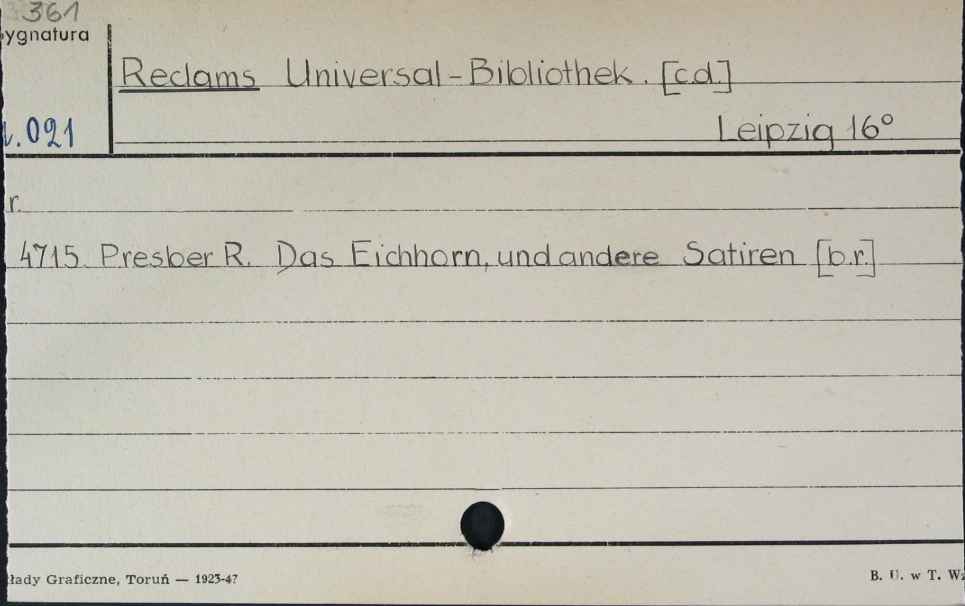 361
ygnatura
Reclams Universal-Bibliothek. [c.d.]
.021
Leipzig 16°
r.
4715 Presber R. Das Eichhorn, und andere Satiren [b.r.]
łady Graficzne, Toruń — 1923-47
B. U. w T. Wz